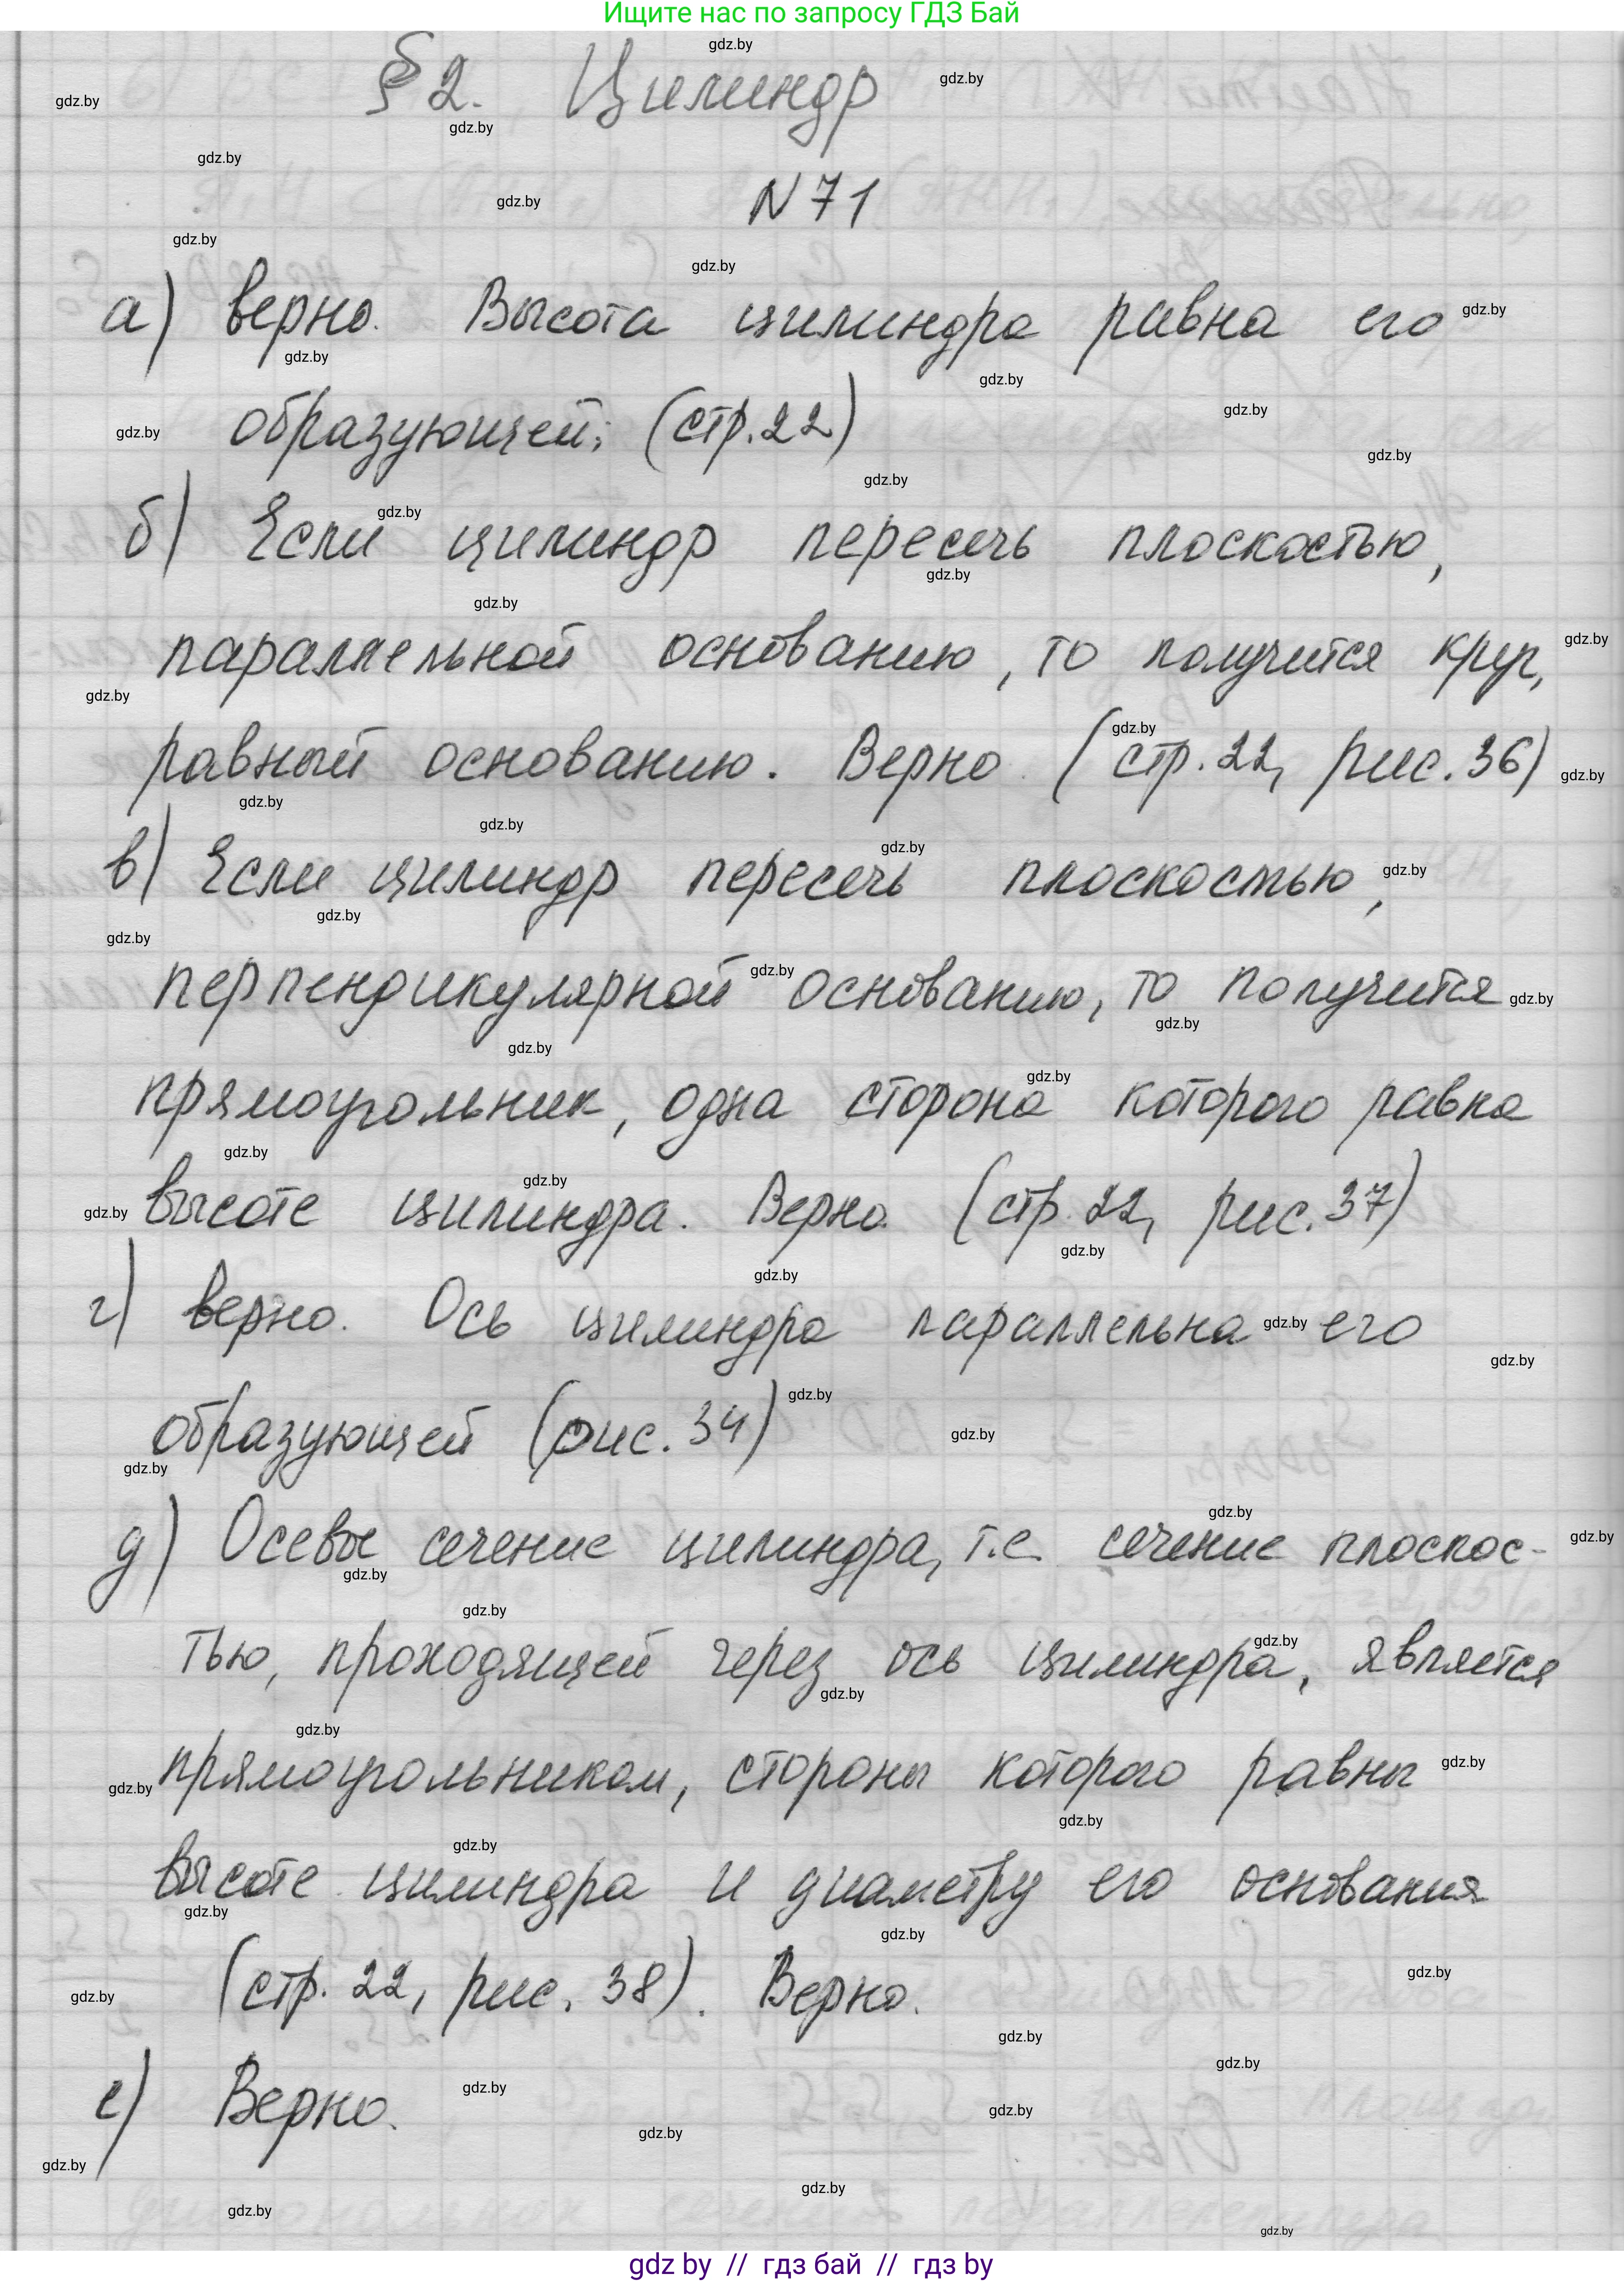 Ищите нас по запросу ГДЗ Бай
§2. Цилиндр
N 71
а) верно. Высота цилиндра равна его
образующей; (стр.22)
б) Если цилиндр пересечь плоскостью,
параллельной основанию, то получится круг,
равный основанию. Верно (стр.22, рис.36)
в) Если цилиндр пересечь плоскостью,
перпендикулярной основанию, то получится
прямоугольник, одна сторона которого равна
высоте цилиндра. Верно. (стр. 22, рис.37)
г) верно. Ось цилиндра параллельна его
образующей (рис. 34)
д) Осевое сечение цилиндра, т.е. сечение плоскос-
тью, проходящей через ось цилиндра, является
прямоугольником, стороны которого равны
высоте цилиндра и диаметру его основания
(стр. 22, рис. 38). Верно.
е) Верно.
gdz by // гдз бай // гдз by